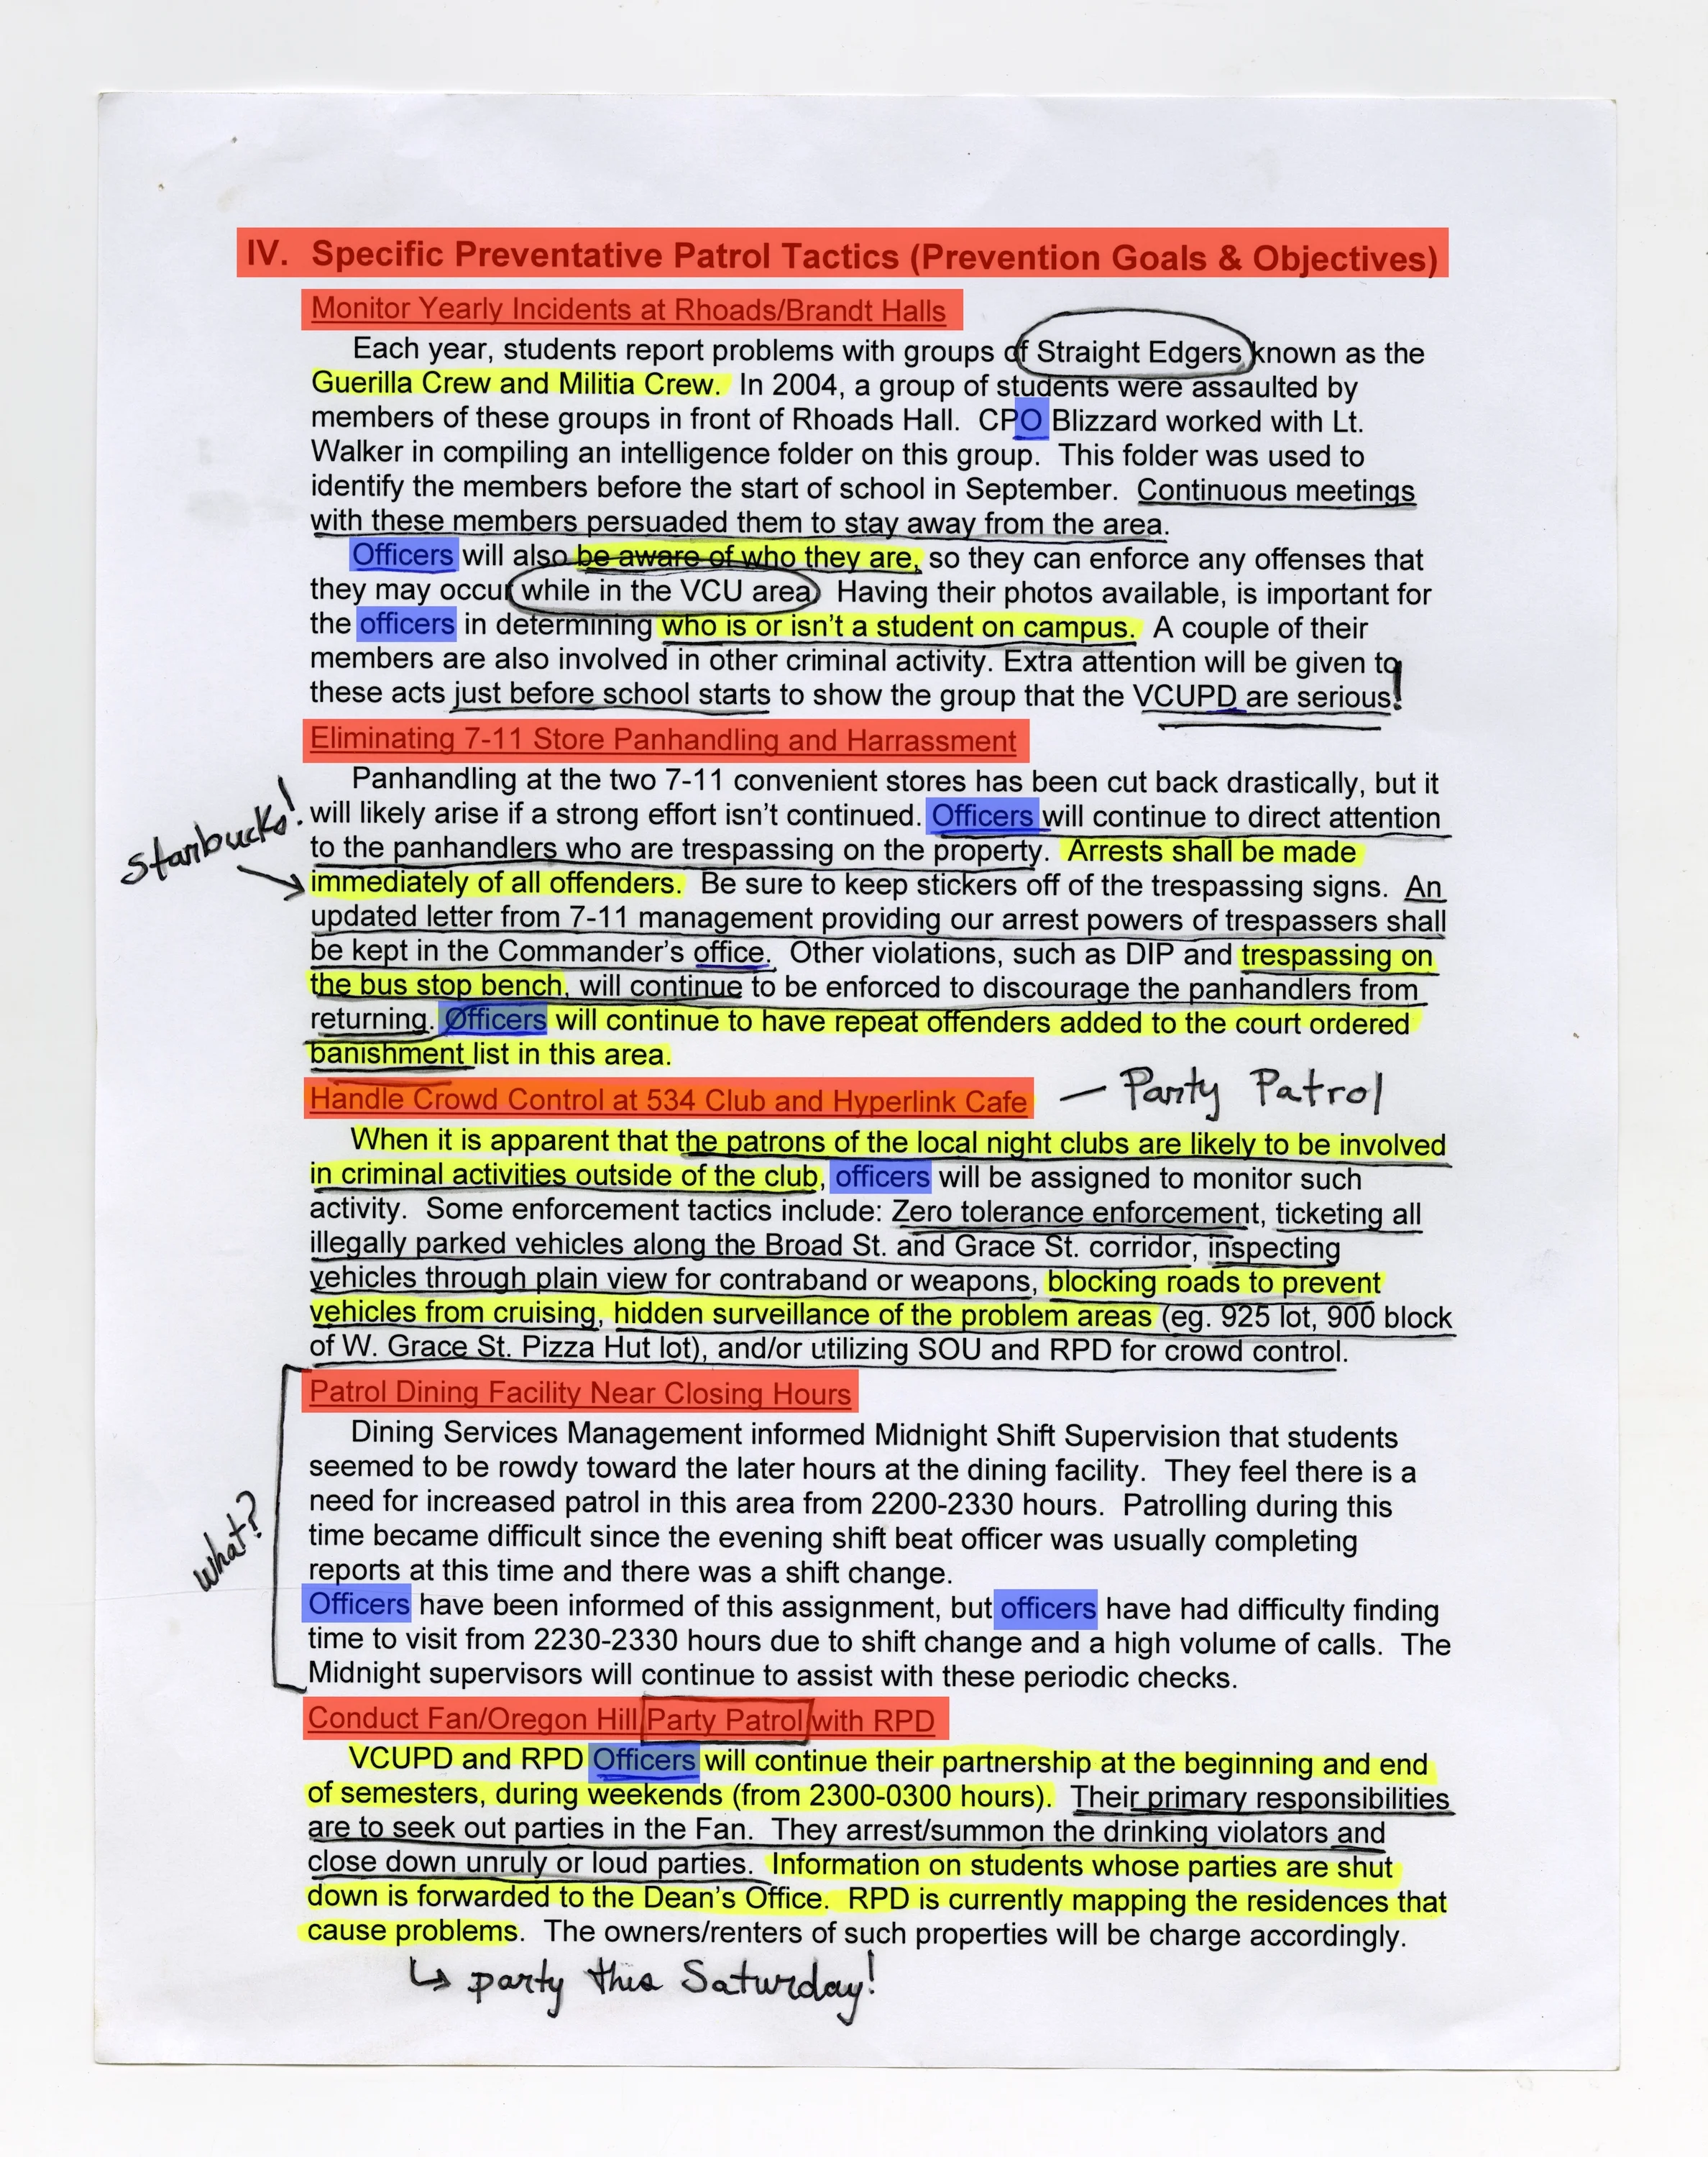 IV. Specific Preventative Patrol Tactics (Prevention Goals & Objectives)
Monitor Yearly Incidents at Rhoads/Brandt Halls
Each year, students report problems with groups of Straight Edgers known as the
Guerilla Crew and Militia Crew. In 2004, a group of students were assaulted by
members of these groups in front of Rhoads Hall. CPO Blizzard worked with Lt.
Walker in compiling an intelligence folder on this group. This folder was used to
identify the members before the start of school in September. Continuous meetings
with these members persuaded them to stay away from the area.
Officers will also be aware of who they are, so they can enforce any offenses that
they may occur while in the VCU area. Having their photos available, is important for
the officers in determining who is or isn't a student on campus. A couple of their
members are also involved in other criminal activity. Extra attention will be given to
these acts just before school starts to show the group that the VCUPD are serious!
Eliminating 7-11 Store Panhandling and Harrassment
Panhandling at the two 7-11 convenient stores has been cut back drastically, but it
will likely arise if a strong effort isn't continued. Officers will continue to direct attention
to the panhandlers who are trespassing on the property. Arrests shall be made
Starbucks!
immediately of all offenders. Be sure to keep stickers off of the trespassing signs. An
updated letter from 7-11 management providing our arrest powers of trespassers shall
be kept in the Commander's office. Other violations, such as DIP and trespassing on
the bus stop bench, will continue to be enforced to discourage the panhandlers from
returning. Officers will continue to have repeat offenders added to the court ordered
banishment list in this area.
Handle Crowd Control at 534 Club and Hyperlink Cafe – Party Patrol
When it is apparent that the patrons of the local night clubs are likely to be involved
in criminal activities outside of the club, officers will be assigned to monitor such
activity. Some enforcement tactics include: Zero tolerance enforcement, ticketing all
illegally parked vehicles along the Broad St. and Grace St. corridor, inspecting
vehicles through plain view for contraband or weapons, blocking roads to prevent
vehicles from cruising, hidden surveillance of the problem areas (eg. 925 lot, 900 block
of W. Grace St. Pizza Hut lot), and/or utilizing SOU and RPD for crowd control.
Patrol Dining Facility Near Closing Hours
Dining Services Management informed Midnight Shift Supervision that students
seemed to be rowdy toward the later hours at the dining facility. They feel there is a
need for increased patrol in this area from 2200-2330 hours. Patrolling during this
time became difficult since the evening shift beat officer was usually completing
what?
reports at this time and there was a shift change.
Officers have been informed of this assignment, but officers have had difficulty finding
time to visit from 2230-2330 hours due to shift change and a high volume of calls. The
Midnight supervisors will continue to assist with these periodic checks.
Conduct Fan/Oregon Hill Party Patrol with RPD
VCUPD and RPD Officers will continue their partnership at the beginning and end
of semesters, during weekends (from 2300-0300 hours). Their primary responsibilities
are to seek out parties in the Fan. They arrest/summon the drinking violators and
close down unruly or loud parties. Information on students whose parties are shut
down is forwarded to the Dean's Office. RPD is currently mapping the residences that
cause problems. The owners/renters of such properties will be charge accordingly.
↳ party this Saturday!